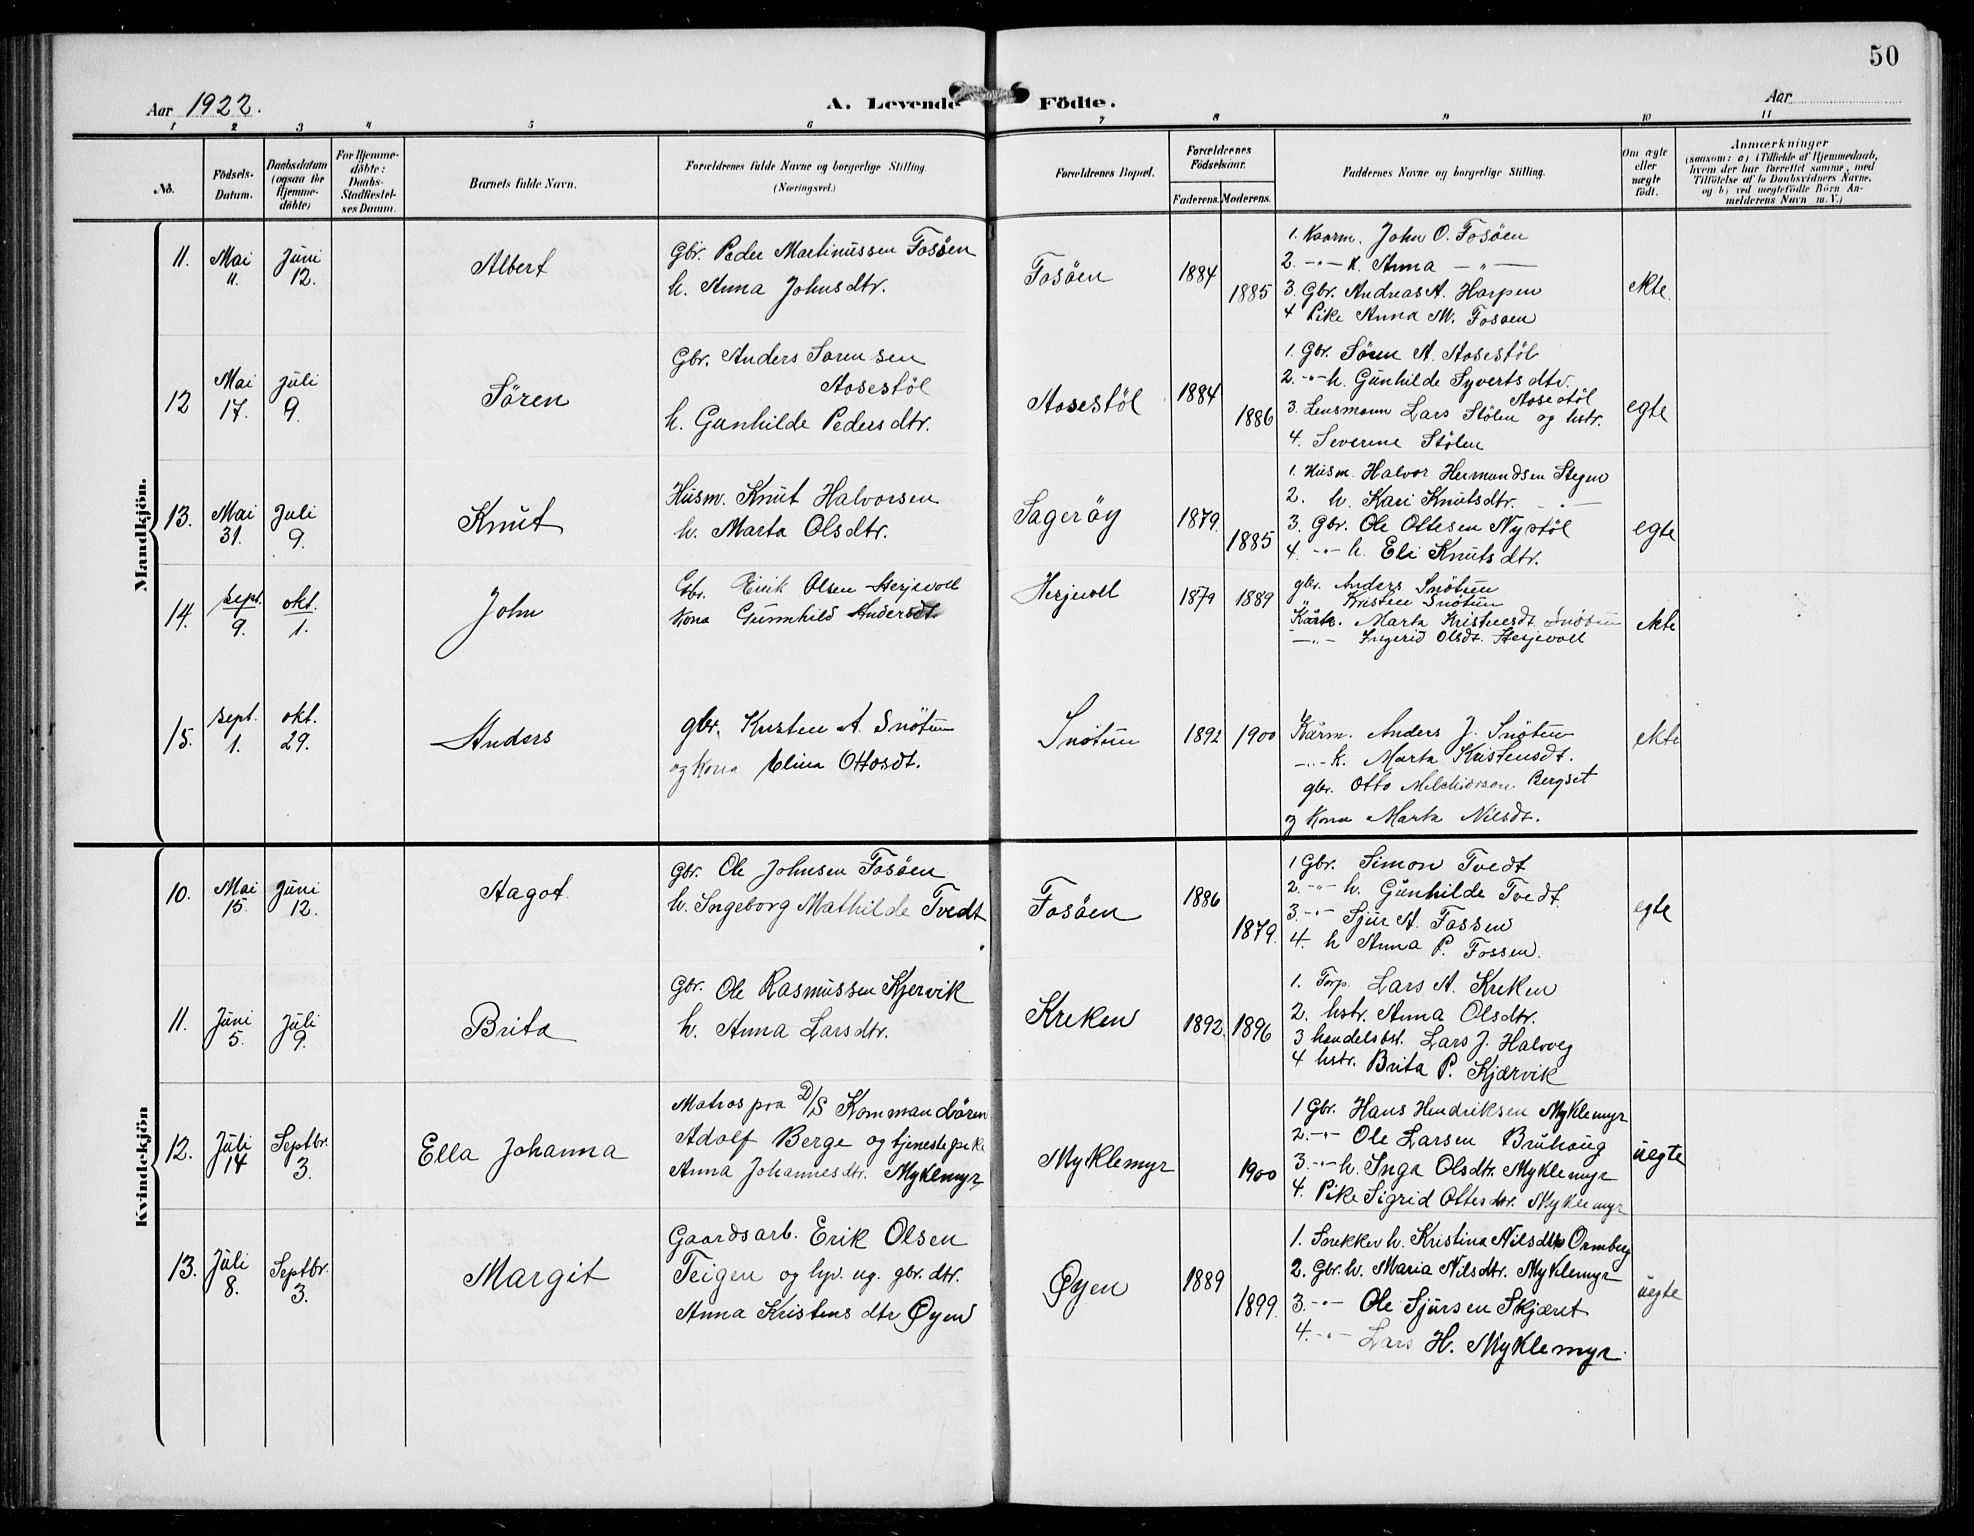 50
Aar 1922.
A. Levende Födte.
Aar
1 2 3 4 5 6 7 8 9 10 11
No.
Födsels-Datum.
Daabsdatum (ogsaa for Hjemme-döbte)
For Hjemme-döbte: Daabs-Stadfæstel-ses Datum.
Barnets fulde Navn.
Forældrenes fulde Navne og borgerlige Stilling. (Næringsvei.)
Forældrenes Bopæl.
Forældrenes Födselsaar.
Faderens. Moderens.
Faddernes Navne og borgerlige Stilling.
Om ægte eller uægte födt.
Anmærkninger
(saasom: a) i Tilfælde af Hjemmedaab,
hvem der har forrettet samme, med
Tilföielse af to Daabsvidners Navne,
og b) ved uægtefödte Börn An-
melderens Navn m. V.)
Mandkjön.
11. Mai 11. Juni 12. Albert
Gbr. Peder Martinussen Fosöen
h. Anna Johnsdtr.
Fosöen 1884 1885
1. Kaarm. John O. Fosöen
2. -"- k. Anna -"-
3. Gbr. Andreas A. Harpen
4 Pike Anna M. Fosöen
ekte.
12 Mai 17. Juli 9. Sören
Gbr. Anders Sörensen
Aasestöl
h. Gunhilde Pedersdtr.
Aasestöl 1884 1886
1. Gbr. Sören A. Aasestöl
2. -"- h. Gunhilde Syvertsdtr.
Aasestöl
3. Lensmann Lars Stölen og hstr.
4. Severine Stölen
egte
13. Mai 31. Juli 9. Knut
Husm. Knut Halvorsen
h. Marta Olsdtr.
Sageröy 1879. 1885
1. Husm. Halvor Hermundsen Stegen
2. h. Kari Knutsdtr. -"-
3. Gbr. Ole Ottesen Nystöl
4. -"- h. Eli Knutsdtr.
egte
14. Sept. 9. okt. 1. John
Gbr. Erik Olsen Herjevoll
Kona Gunnhild Andersdt.
Herjevoll 1879 1889
gbr. Anders Snötun
" Kristen Snötun
Kårk. Marta Kristensdt. Snötun
-"- Ingerid Olsdt. Herjevoll
ekte
15. Sept. 1. okt. 29. Anders
gbr. Kristen A. Snötun
og Kona Elina Ottosdt.
Snötun 1892 1900
Kårm. Anders J. Snötun
-"- k. Marta Kristensdt.
gbr. Otto Melchiorson Bergset
og Kona Marta Nilsdt.
ekte
Kvindekjön
10. Mai 15. Juni 12. Aagot.
Gbr. Ole Johnsen Fosöen
h. Ingeborg Mathilde Tvedt
Fosöen 1886 1879.
1 Gbr. Simon Tvedt
2. -"- h. Gunhilde Tvedt.
3. -"- Sjur A. Fossen
4. h Anna P. Fossen.
egte
11. Juni 5. Juli 9. Brita
Gbr. Ole Rasmussen Kjervik
h. Anna Larsdtr.
Kreken 1892. 1896
1. Forp. Lars A. Kreken
2. hstr. Anna Olsdtr.
3 handelsbst. Lars J. Halveg
4 hstr. Brita P. Kjærvik
12. Juli 14 Septbr. 3. Ella Johanna
Matros paa D/S Kommandören
Adolf Berge og tjenestepike
Anna Johannesdtr. Myklemyr
Myklemyr 1900
1 Gbr. Hans Hendriksen Myklemyr
2. -"- Ole Larsen Bruhaug
3. -"- h. Inga Olsdtr. Myklemyr
4. Pike Sigrid Ottesdtr. Myklemyr
uegte
13. Juli 8. Septbr. 3. Margit
Gaardsarb. Erik Olsen
Teigen og hjv. ug. gbr. dtr.
Anna Kristensdtr Øyen
Øyen 1889 1899.
1. Snekker h. Kristina Nilsdtr Ormberg
2. Gbr. h. Maria Nilsdtr. Myklemyr
3. -"- Ole Sjursen Skjæret
4. -"- Lars H. Myklemyr.
uegte